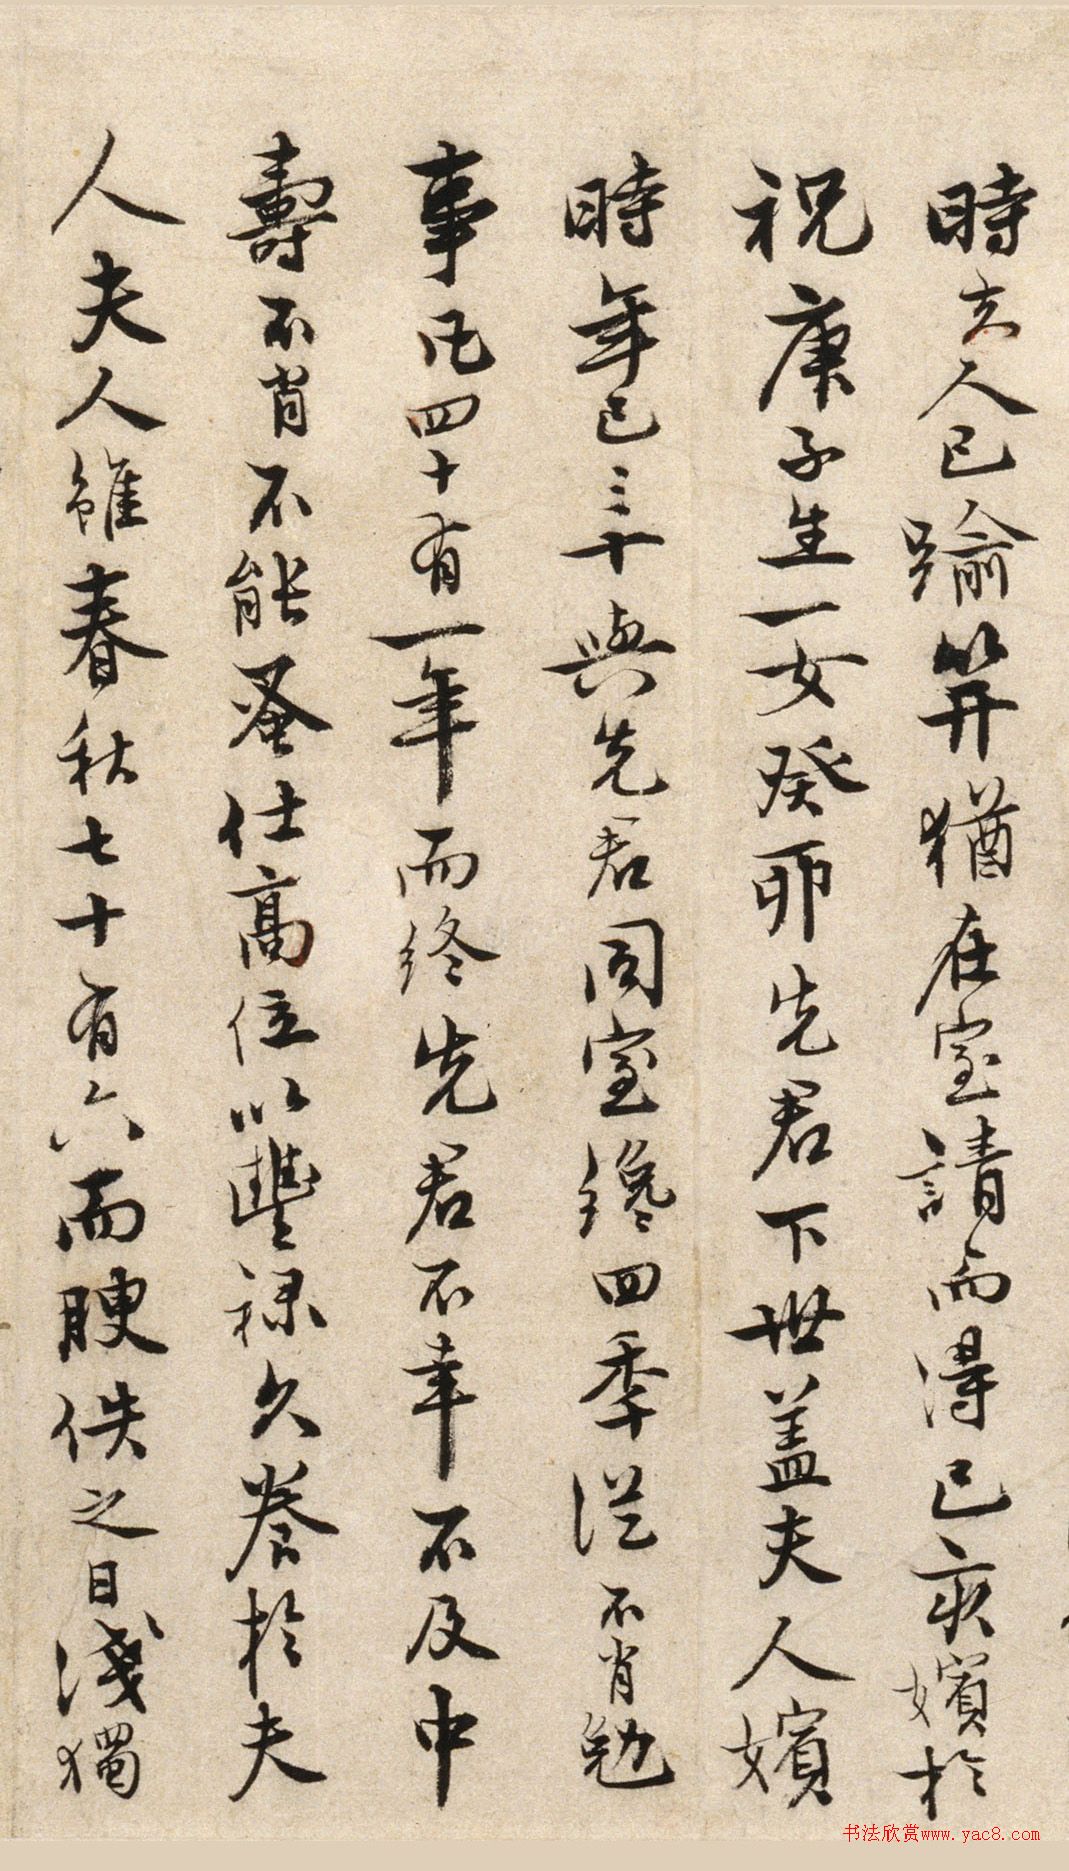 時夫人已踰笄猶在室請而得已亥嬪於
祝庚子生一女癸卯先君下世蓋夫人嬪
時年已三十與先君同室纔四季從不肖勉
事凡四十有一年而終先君不幸不及中
壽不肖不能蚤仕高位以豐祿久養於夫
人夫人雖春秋七十有六而腴佚之日淺獨
书法欣赏www.yac8.com